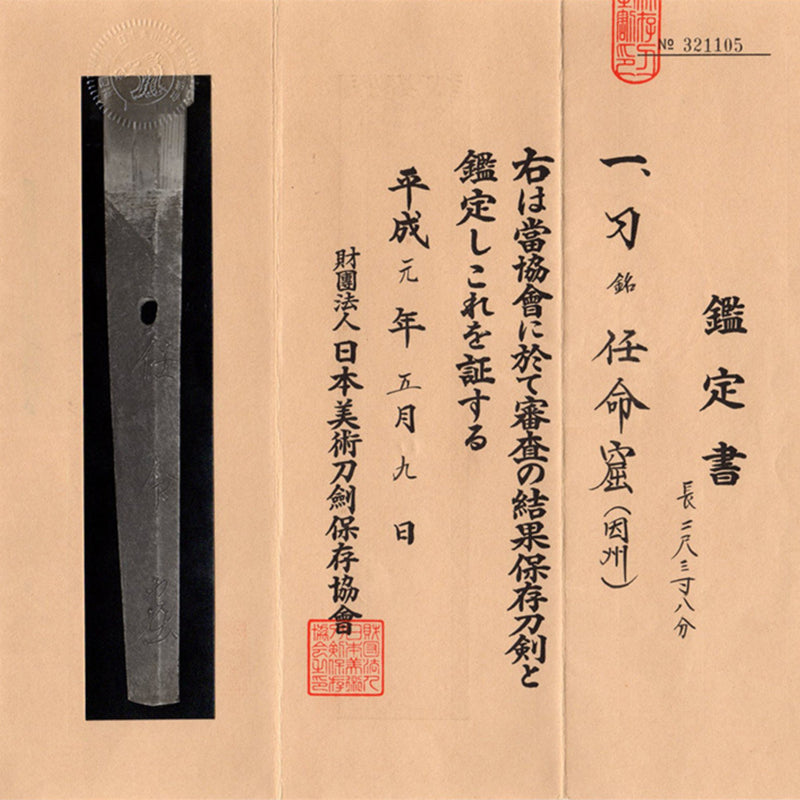 № 321105
鑑定書
長二尺三寸八分
一、刀 銘 任命窟(因州)
右は當協會に於て審査の結果保存刀剣と
鑑定しこれを証する
平成元年五月九日
財團法人日本美術刀劍保存協會
財団法人
日本美術
刀剣保存
協会之印